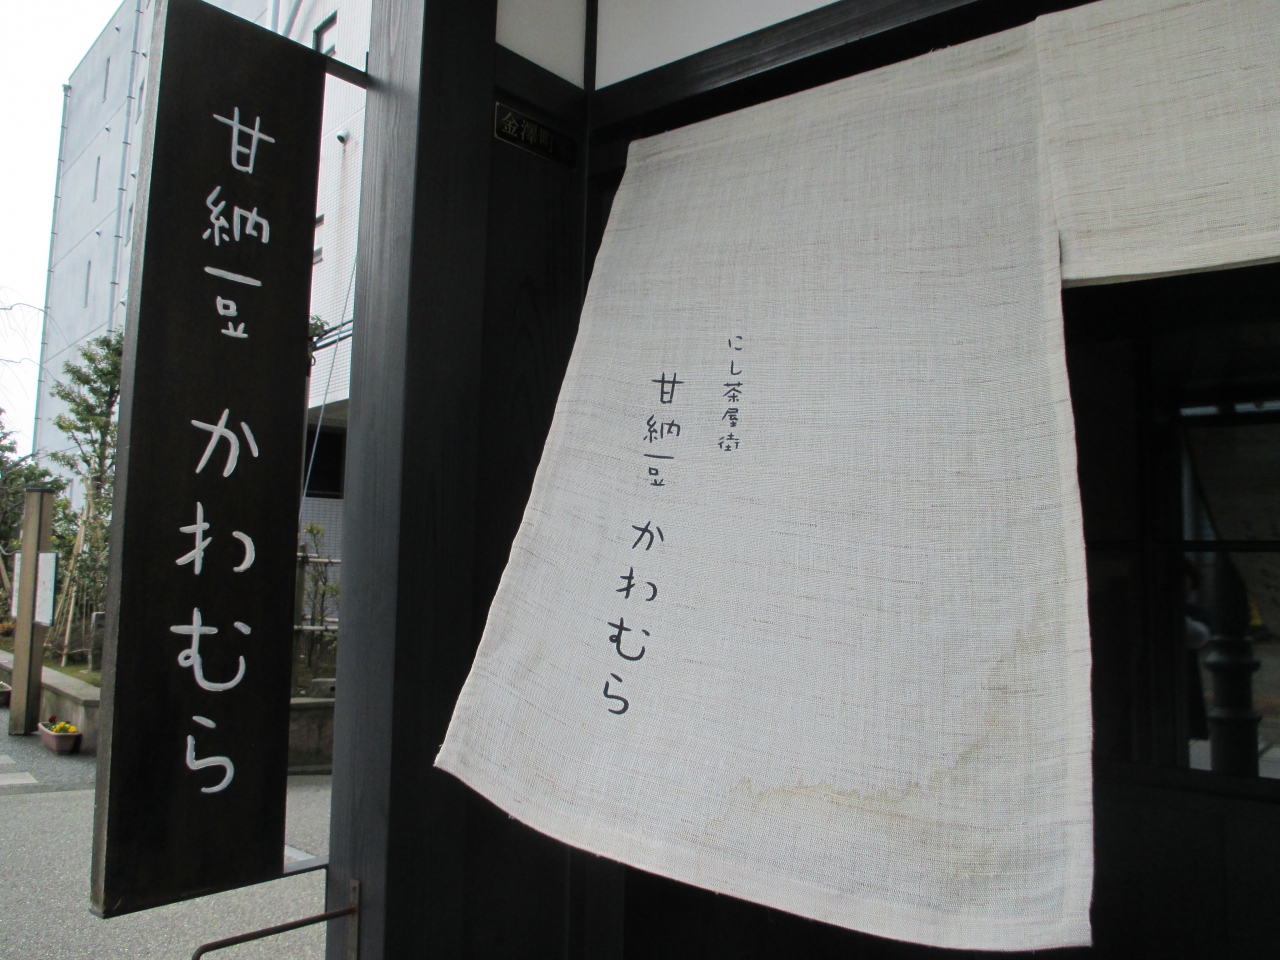 甘納豆 かわむら
金澤町家
にし茶屋街
甘納豆 かわむら